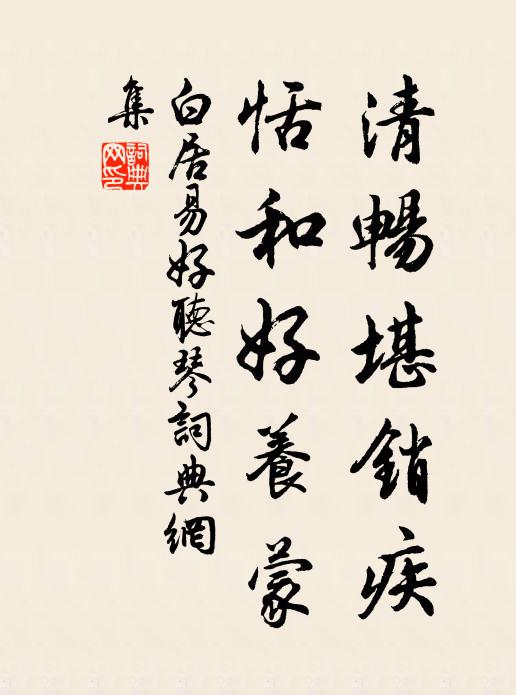 清暢堪銷疾
恬和好養蒙
白居易好聽琴詞典網
集
詞典
网印